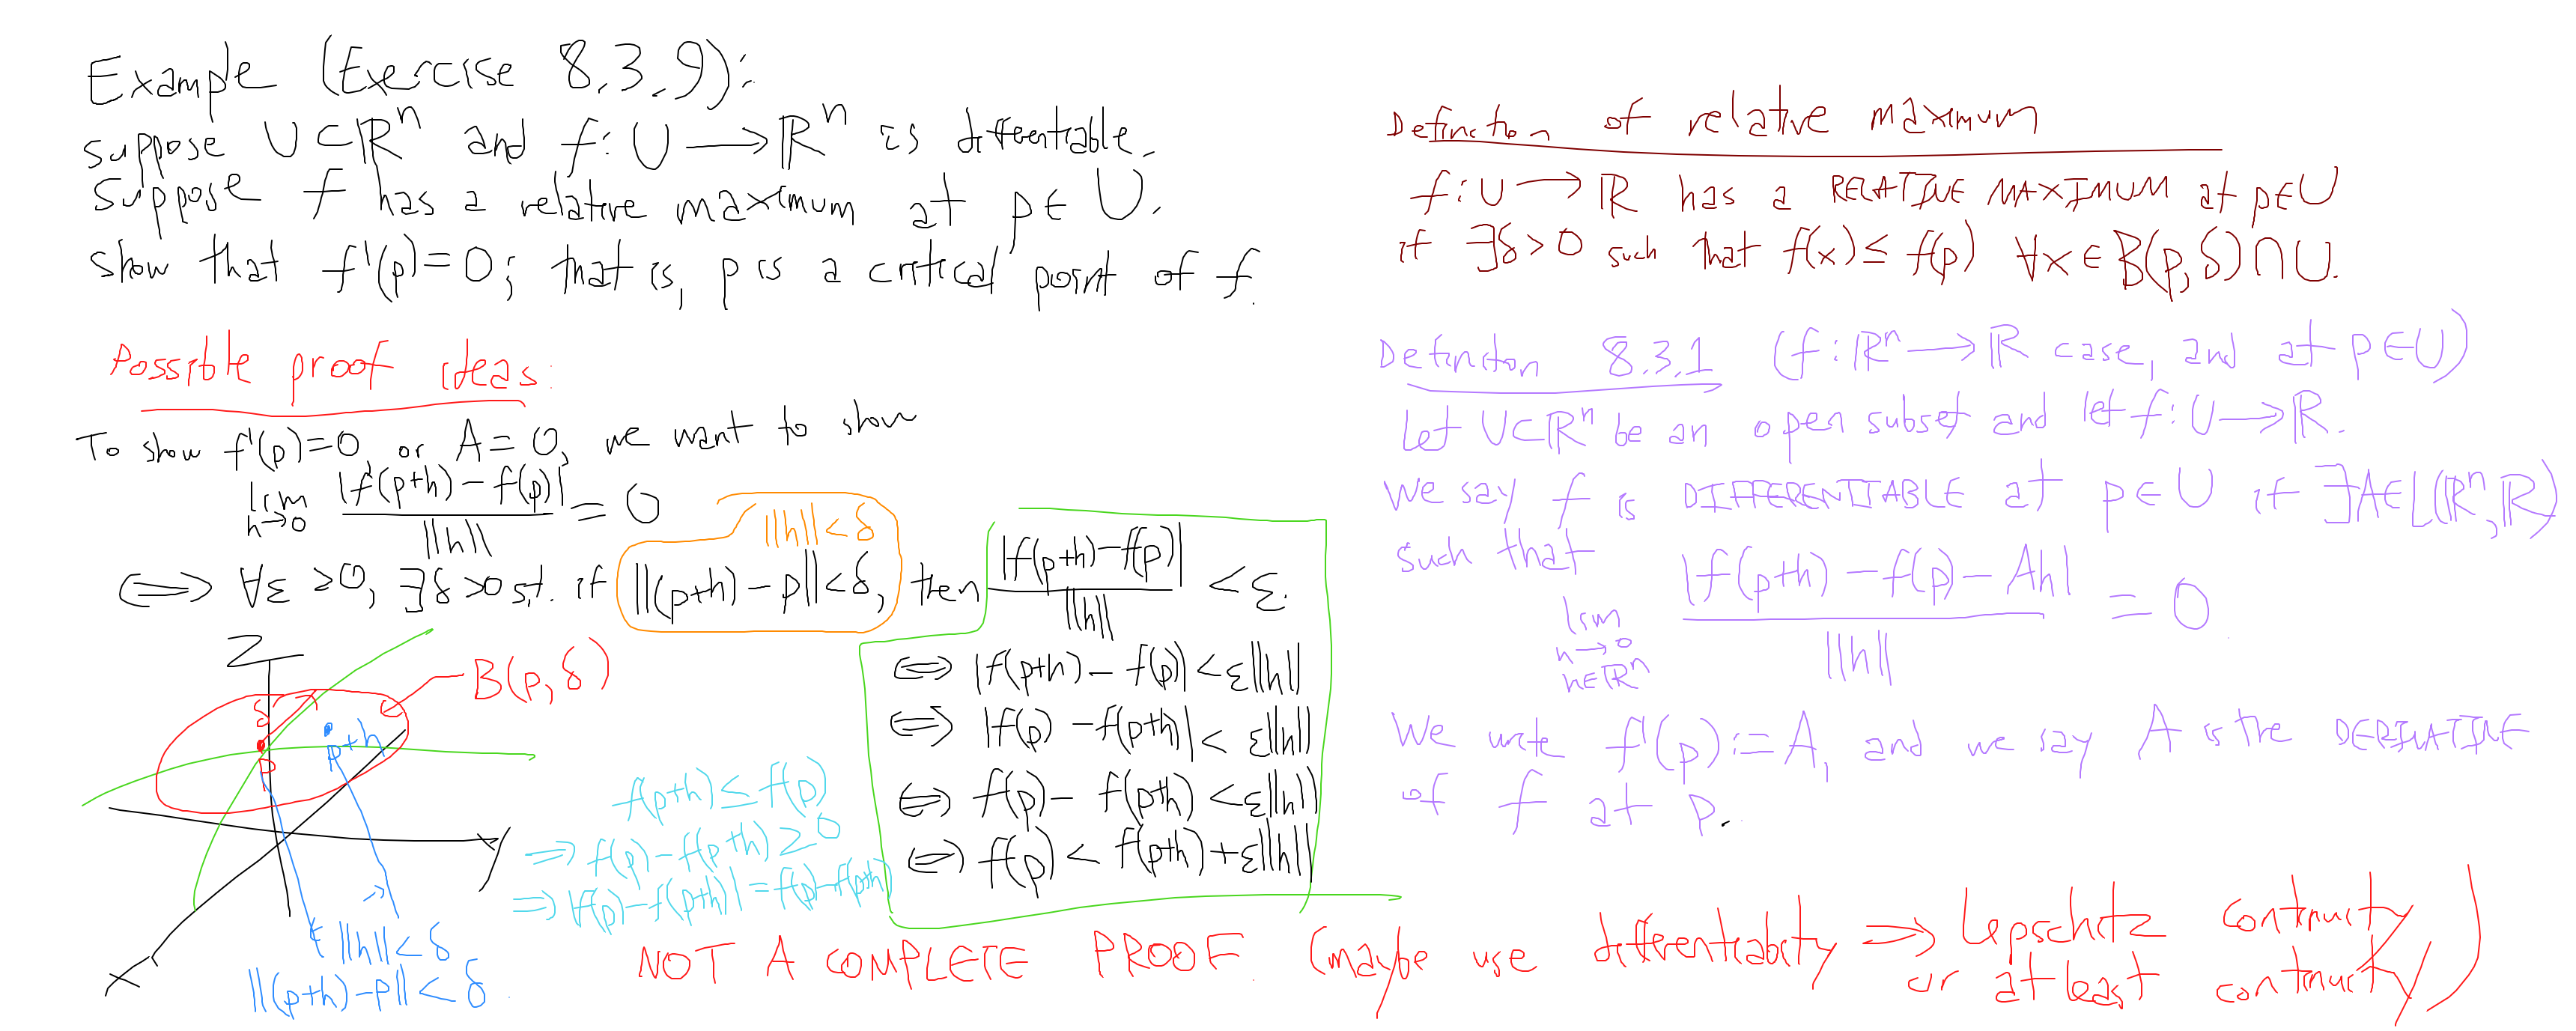 Example (Exercise 8.3.9):
suppose U⊂ℝⁿ and f: U⟶ℝⁿ is differentiable.
Suppose f has a relative maximum at p∈U.
show that f'(p)=0; that is, p is a critical point of f.
Possible proof ideas:
To show f'(p)=0, or A=0, we want to show
lim h→0 |f(p+h)-f(p)| / ||h|| = 0
⟺ ∀ε>0, ∃δ>0 s.t. if ||(p+h)-p||<δ, then |f(p+h)-f(p)| / ||h|| < ε.
||h||<δ
⟺ |f(p+h)-f(p)|<ε||h||
⟺ |f(p)-f(p+h)|<ε||h||
⟺ f(p)-f(p+h)<ε||h||
⟺ f(p)<f(p+h)+ε||h||
Z
B(p,δ)
δ
p+h
p
y
x
||h||<δ
||(p+h)-p||<δ
f(p+h)≤f(p)
⟹ f(p)-f(p+h)≥0
⟹ |f(p)-f(p+h)|=f(p)-f(p+h)
NOT A COMPLETE PROOF (maybe use differentiability ⟹ Lipschitz continuity
or at least continuity)
Definition of relative maximum
f: U⟶ℝ has a RELATIVE MAXIMUM at p∈U
if ∃δ>0 such that f(x)≤f(p) ∀x∈B(p,δ)∩U.
Definition 8.3.1 (f: ℝⁿ⟶ℝ case, and at p∈U)
Let U⊂ℝⁿ be an open subset and let f: U⟶ℝ.
We say f is DIFFERENTIABLE at p∈U if ∃A∈L(ℝⁿ,ℝ)
such that
lim h→0 h∈ℝⁿ |f(p+h)-f(p)-Ah| / ||h|| = 0
We write f'(p):=A, and we say A is the DERIVATIVE
of f at p.